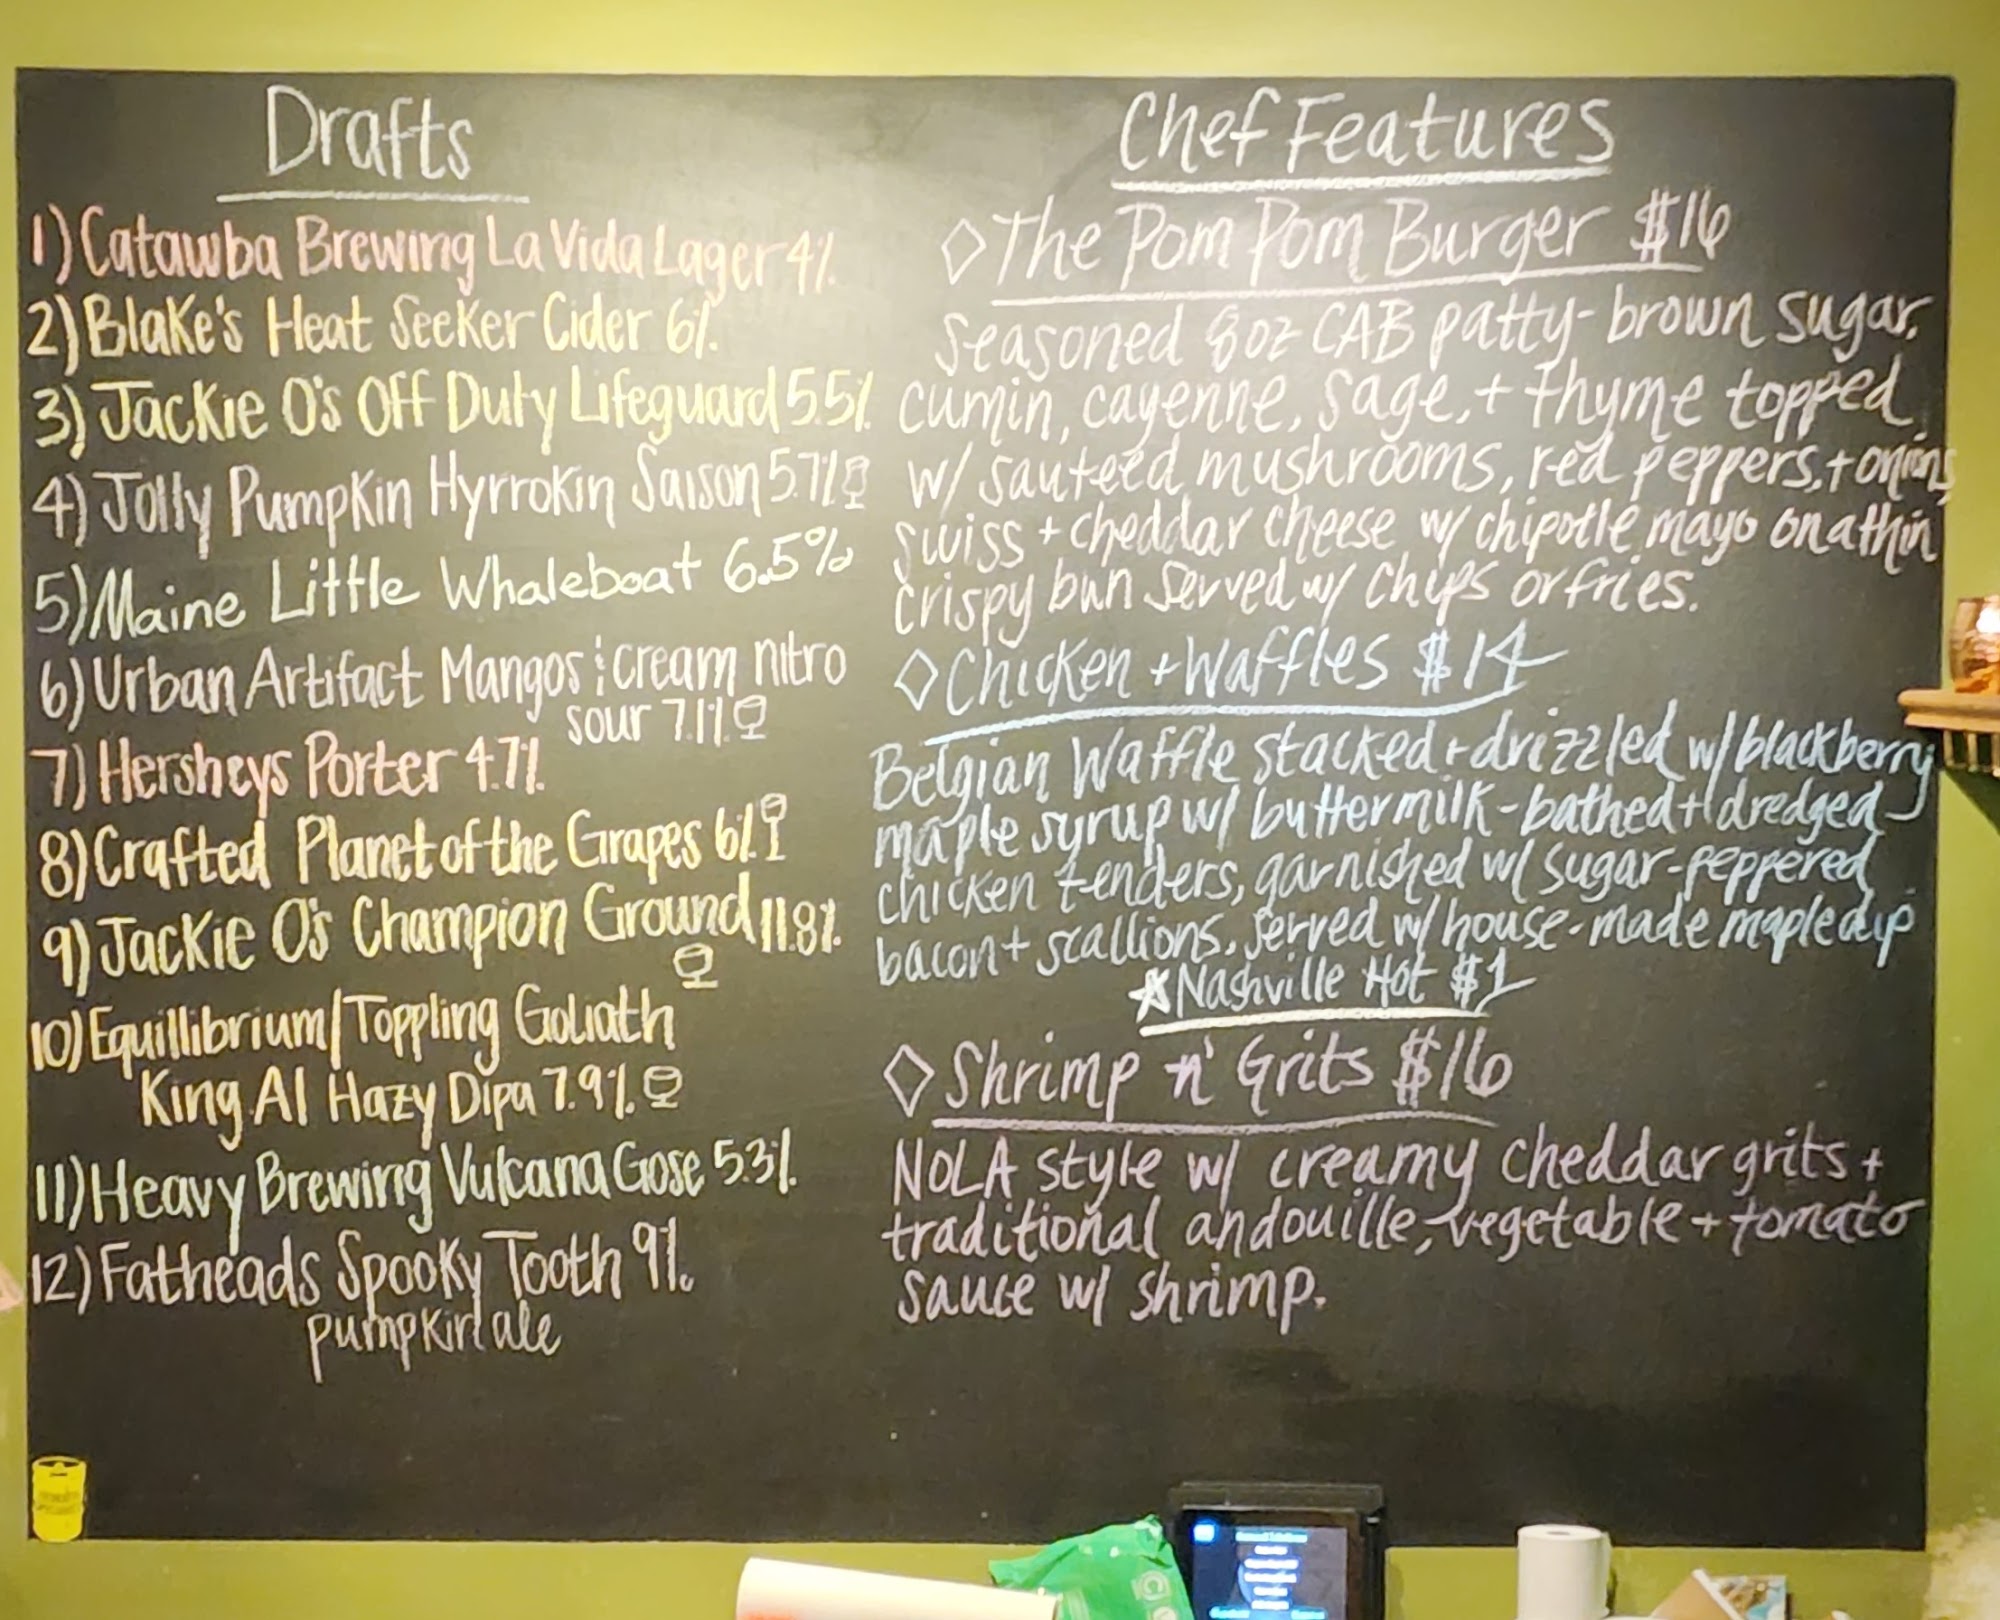 Drafts
1) Catawba Brewing La Vida Lager 4%
2) Blake's Heat Seeker Cider 6%
3) Jackie O's Off Duty Lifeguard 5.5%
4) Jolly Pumpkin Hyrrokin Saison 5.7%
5) Maine Little Whaleboat 6.5%
6) Urban Artifact Mangos & cream nitro
sour 7.1%
7) Hersheys Porter 4.7%
8) Crafted Planet of the Grapes 6%
9) Jackie O's Champion Ground 11.8%
10) Equillibrium/Toppling Goliath
King Al Hazy Dipa 7.9%
11) Heavy Brewing Vulcana Gose 5.3%
12) Fatheads Spooky Tooth 9%
pumpkin ale
Chef Features
◇ The Pom Pom Burger $16
Seasoned 8oz CAB patty - brown sugar,
cumin, cayenne, sage, + thyme topped
w/ sauteed mushrooms, red peppers, + onions,
swiss + cheddar cheese w/ chipotle mayo on a thin
crispy bun served w/ chips or fries.
◇ Chicken + Waffles $14
Belgian Waffle stacked + drizzled w/ blackberry
maple syrup w/ buttermilk-bathed + dredged
chicken tenders, garnished w/ sugar-peppered
bacon + scallions, served w/ house-made maple dip
☆ Nashville Hot $1
◇ Shrimp n' Grits $16
NOLA style w/ creamy cheddar grits +
traditional andouille, vegetable + tomato
sauce w/ shrimp.